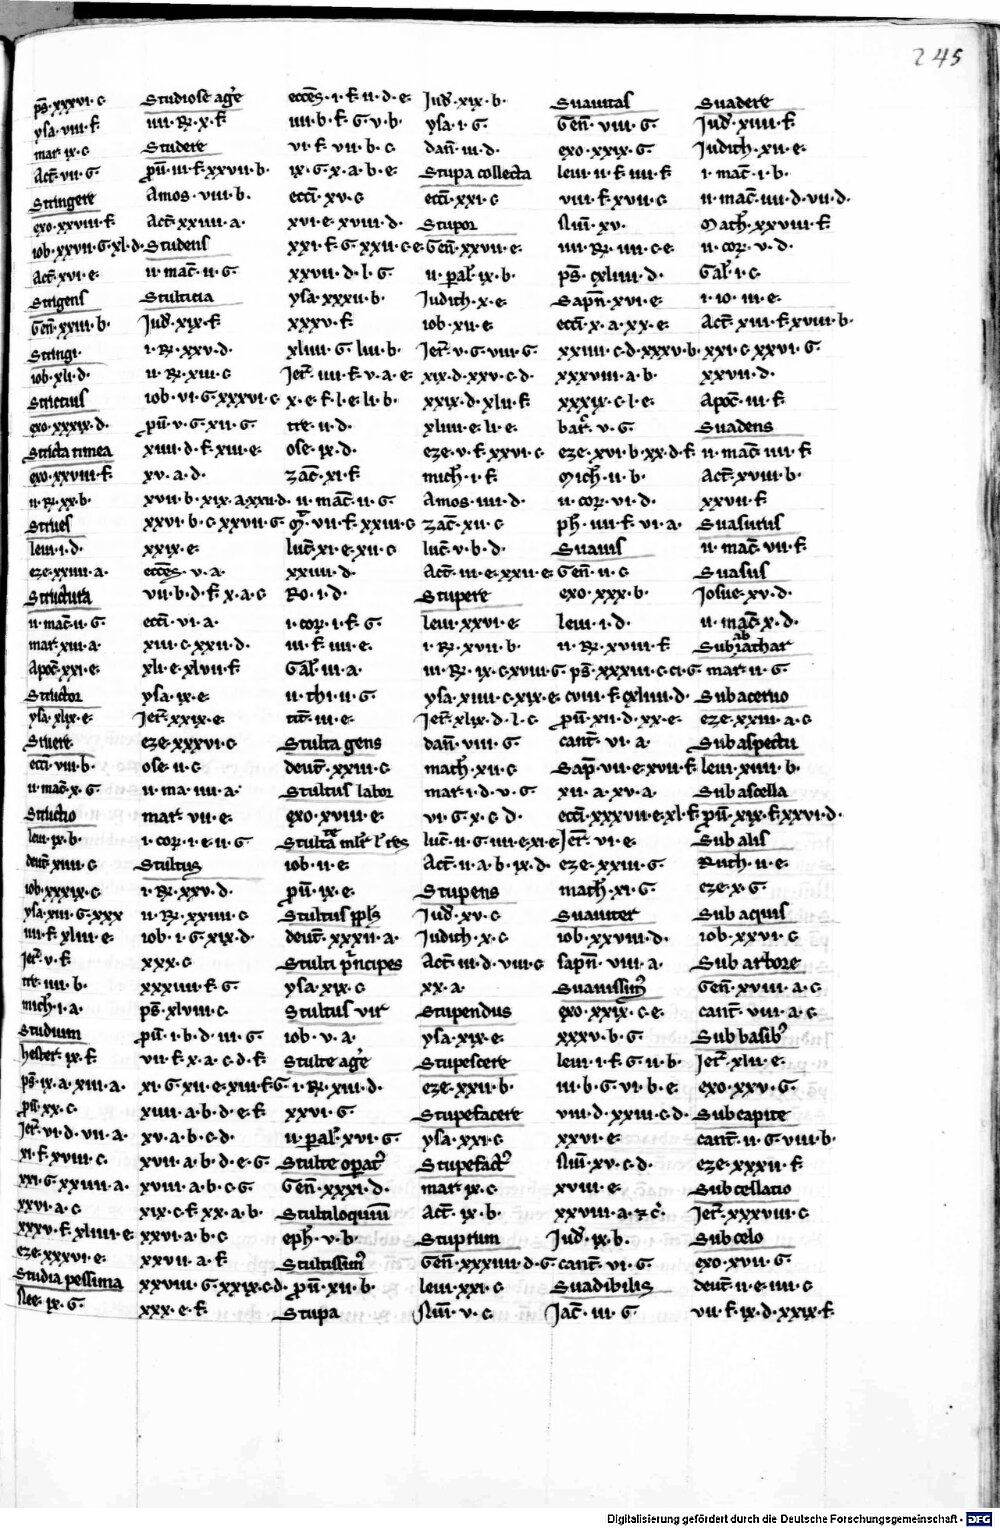 245
ps̄·xxxvi·c
ysa·viii·f
mar·ix·c
Act̄·vii·G
Stringere
exo·xxviii·f
iob·xxvii·G·xl·d·
Act̄·xvi·e·
Strigens
Gen̄·xxiii·b·
Stringi·
iob·xli·d·
Strictius
exo·xxxix·d·
Stricta tunica
exo·xxviii·f·
ii·R·xx·b·
Strues
leui·i·d·
eze·xxiiii·a·
Structura
ii·mac̄·ii·G·
mar·xiii·a·
Apoc̄·xxi·e·
Structor
ysa·xlix·e·
Struere
ecci·viii·b·
ii·mac̄·x·G·
Structio
leui·ix·b·
deut̄·xiii·c
iob·xxxix·c
ysa·xiii·G·xxx
iiii·f·xliii·e·
Jer̄·v·f
tre·iiii·b·
mich̄·i·a·
Studium
hester·ix·f
ps̄·ix·a·xiii·a·
pū·xx·c·
Jer̄·vi·d·vii·a·
xi·f·xviii·c·
xxi·G·xxiiii·a·
xxvi·a·c·
xxxv·f·xliiii·e·
eze·xxxvi·e·
Studia pessima
Nee·ix·G·
Studiose ag̕e
iiii·R·x·f
Studere
pū·iii·f·xxvii·b·
Amos·viii·b·
Act̄·xxiiii·a·
Studens
ii·mac̄·ii·G·
Stulticia
Jud̄·xix·f·
i·R·xxv·d·
ii·R·xiii·c
iob·vi·G·xxxvi·c
pū·v·G·xii·G·
xiiii·d·f·xiii·e·
xv·a·d·
xvii·b·xix·a·xxii·d·
xxvi·b·c·xxvii·G·
xxix·e·
ecces·v·a·
vii·b·d·f·x·a·c
ecci·vi·a·
xiii·c·xxii·d·
xli·e·xlvii·f
ysa·ix·e·
Jer̄·xxix·e·
eze·xxxvi·c
ose·ii·c
ii·ma·iiii·a·
mar·vii·e·
i·cor·i·e·ii·G
Stultus
i·R·xxv·d·
ii·R·xxiiii·c
iob·i·G·xix·d·
xxx·c
xxxiiii·f·G
ps̄·xlviii·c
pū·i·b·d·iii·G
vii·f·x·a·c·d·f
xi·G·xii·e·xiii·f·G·
xiiii·a·b·d·e·f
xv·a·b·c·d·
xvii·a·b·d·e·G
xviii·a·b·c·G
xix·c·f·xx·a·b·
xxvi·a·b·c
xxvii·a·f
xxviii·G·xxix·c·d·
xxx·e·f
ecces̄·i·f·ii·d·e·
iiii·b·f·G·v·b·
vi·f·vii·b·c
ix·G·x·a·b·e·
ecci·xv·c
xvi·e·xviii·d·
xxi·f·G·xxii·c·e·
xxvii·d·l·G
ysa·xxxii·b·
xxxv·f
xliiii·G·liii·b·
Jer̄·iiii·f·v·a·e·
x·e·f·l·e·li·b·
tre·ii·d·
ose·ix·d·
zac̄·xi·f
ii·mac̄·ii·G
vii·f·xxiii·c
luc̄·xi·e·xii·c
xxiiii·d·
Ro·i·d·
i·cor·i·f·G
iii·f·iiii·e·
Gal̄·iii·a·
ii·thi·ii·G
tit̄·iii·e·
Stulta gens
deut̄·xxxii·c
Stultus labor
exo·xviii·e·
iob·ii·e·
pū·ix·e·
deut̄·xxxii·a·
Stulti p̄ncipes
ysa·xix·c
Stultus vir
iob·v·a·
Stulte ag̕e
i·R·xiii·d·
xxvi·G
ii·paral̄·xvi·G·
Stulte operar̕
Gen̄·xxxi·d·
Stultiloquiū
eph̄·v·b·
Stultissim̕
pū·xii·b·
Stupa
Jud̄·xix·b·
ysa·i·G
dan̄·iii·d·
Stupa collecta
ecci·xxi·c
Stupor
Gen̄·xxvii·e·
ii·paral̄·ix·b·
Judith·x·e·
iob·xii·e·
Jer̄·v·G·viii·G·
xix·d·xxv·c·d·
xxix·d·xlii·f
xliiii·e·li·e·
eze·v·f·xxvi·c
mich̄·i·f
Amos·iiii·d·
zac̄·xii·c
luc̄·v·b·d·
Act̄·iii·e·xxii·e·
Stupere
leui·xxvi·e·
i·R·xvii·b·
iii·R·ix·c·xviii·G
ysa·xiiii·c·xix·e·
Jer̄·xlix·d·l·c
dan̄·viii·G
math̄·xii·c
mar·i·d·v·G
vi·G·x·c·d·
luc̄·ii·G·iiii·e·xi·e·
Act̄·ii·a·b·ix·d·
Stupens
Jud̄·xv·c
Judith·x·c
Act̄·iii·d·viii·c
xx·a·
Stupendus
ysa·xix·e·
Stupescere
eze·xxii·b·
Stupefacere
ysa·xxi·c
Stupefact̕
mar·ix·c
Act̄·ix·b·
Stuprum
Gen̄·xxxiiii·d·G·
leui·xxi·c
Nūi·v·c
Suauitas
Gen̄·viii·G
exo·xxix·G
leui·ii·f·iiii·f·
viii·f·xvii·c
Nūi·xv·
iiii·R·iiii·c·e·
ps̄·cxliiii·d·
Sapn̄·xvi·e·
ecci·x·a·xx·e·
xxiiii·c·d·xxxv·b·
xxxviii·a·b·
xxxix·c·l·e·
bar̄·v·G
eze·xvi·b·xx·d·f
Mich̄·ii·b·
ii·cor·vi·d·
ph̄·iiii·f·vi·a·
Suauis
Gen̄·ii·c
exo·xxx·b·
leui·i·d·
ii·R·xviii·f
ps̄·xxxiii·c·ci·G
cviii·f·cxliiii·d·
pū·xii·d·xx·e·
cant̄·vi·a·
Sap̄·vii·e·xvii·f
xii·a·xv·a·
ecci·xxxvii·e·xl·f
Jer̄·vi·e·
eze·xxiii·G
math̄·xi·G
Suauiter
iob·xxviii·d·
sapn̄·viii·a·
Suauissim̕
exo·xxix·c·e·
xxxv·b·G
leui·i·f·G·ii·b·
iii·b·G·vi·b·e·
viii·d·xxiii·c·d·
xxvi·e·
Nūi·xv·c·d·
xviii·e·
xxviii·a·
Jud̄·ix·b·
cant̄·vi·G
Suadibilis
Jac̄·iii·G
Suadere
Jud̄·xiiii·f
Judith·xii·e·
i·mac̄·i·b·
ii·mac̄·iiii·d·vii·d·
Math̄·xxviii·f
ii·cor·v·d·
Gal̄·i·c
i·io·iii·e·
Act̄·xiii·f·xviii·b·
xxi·c·xxvi·G
xxvii·d·
Apoc̄·iii·f
Suadens
ii·mac̄·iiii·f
Act̄·xviii·b·
xxvii·f
Suasurus
ii·mac̄·vii·f
Suasus
Josue·xv·d·
ii·mac̄·x·d·
mar·ii·G
Sub aceruo
eze·xxiii·a·c
Sub aspectu
leui·xiiii·b·
Sub ascella
pū·xix·f·xxvi·d·
Sub alis
Ruth·ii·e·
eze·x·G
Sub aquis
iob·xxvi·c
Sub arbore
Gen̄·xviii·a·c
cant̄·viii·a·c
Sub basib̕
Jer̄·xlii·e·
exo·xxv·G
Sub capite
cant̄·ii·G·viii·b·
eze·xxxii·f
Sub cellario
Jer̄·xxxviii·c
Sub celo
exo·xvii·G
deut̄·ii·e·iiii·c
vii·f·ix·d·xxix·f
Digitalisierung gefördert durch die Deutsche Forschungsgemeinschaft - DFG